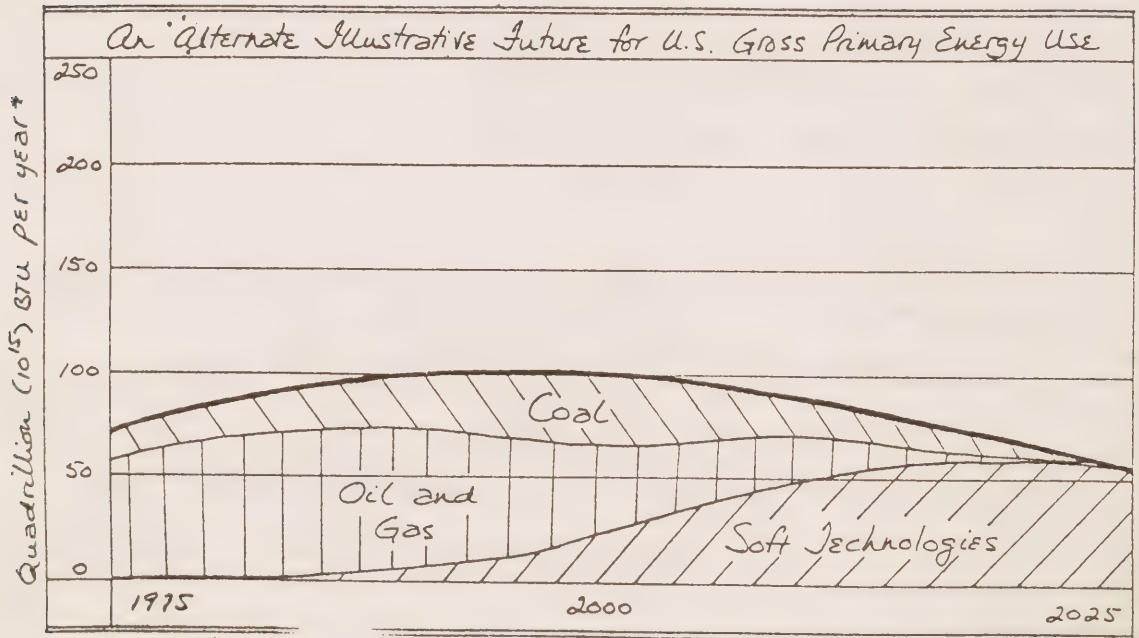 An "Alternate Illustrative Future for U.S. Gross Primary Energy Use
Quadrillion (10¹⁵) BTU per year*
250
200
150
100
50
0
Coal
Oil and
Gas
Soft Technologies
1975
2000
2025